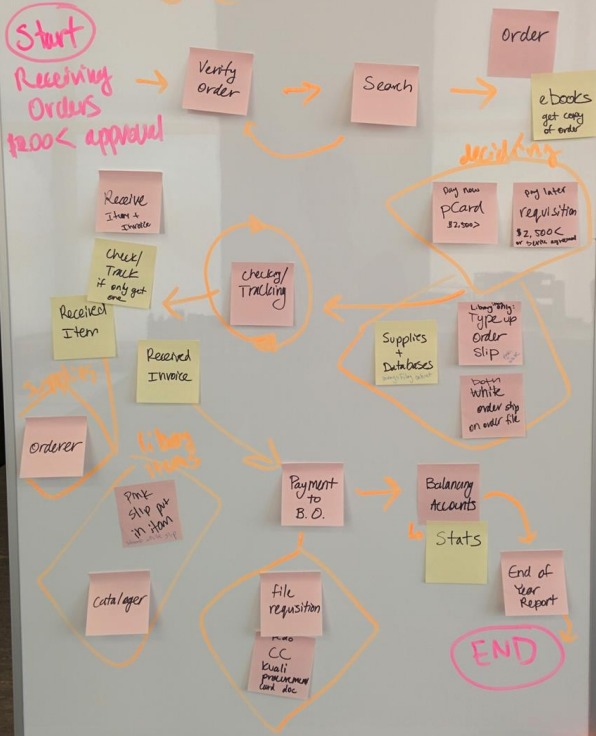 Start
Receiving
Orders
$200< approval
Verify
Order
Search
Order
ebooks
get copy
of order
deciding
Pay now
pCard
$2,500>
pay later
requisition
$2,500<
or service agreement
Receive
Item +
Invoice
Check/
Track
if only get
one
Received
Item
Received
Invoice
Checking/
Tracking
Supplies
+
Databases
Library only:
Type up
Order
Slip
both
White
order slip
on order file
Supplies
Orderer
library
items
Pink
slip put
in item
Cataloger
Payment
to
B.O.
Balancing
Accounts
Stats
End of
Year
Report
END
file
requsition
CC
Kuali
procurement
card doc